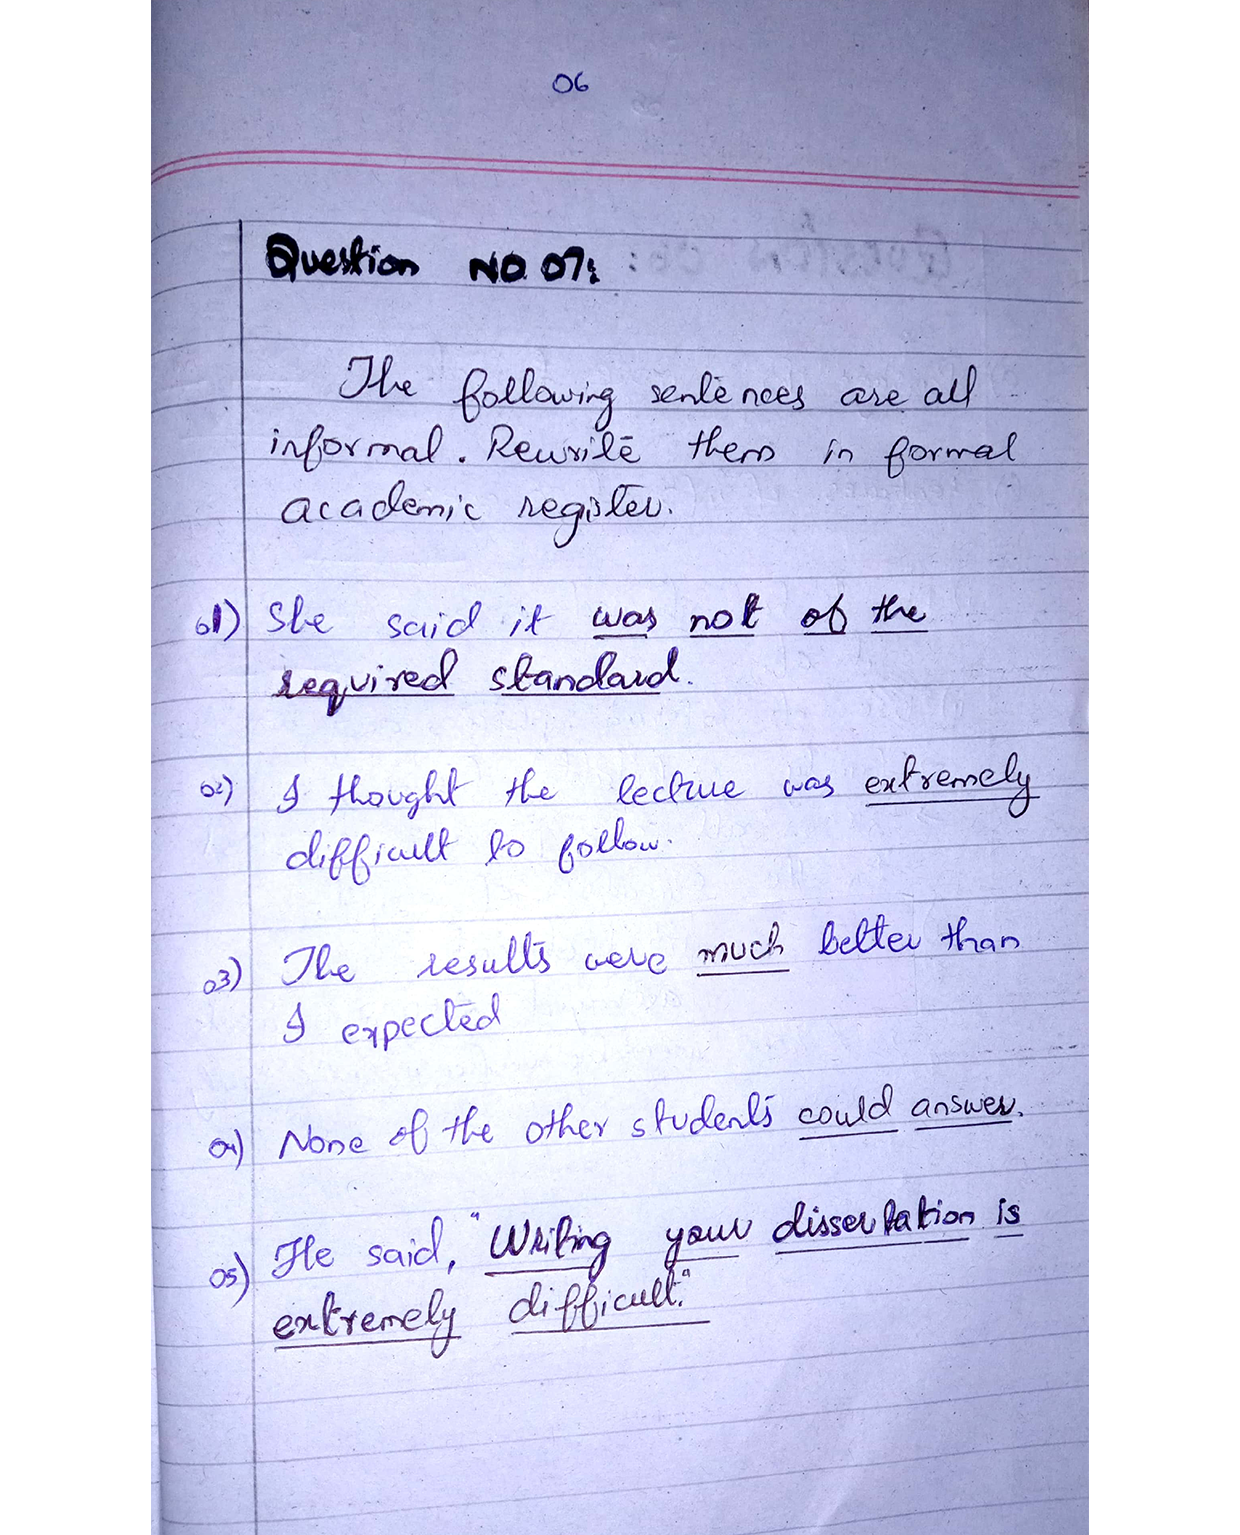 06
Question NO. 07:
The following sentences are all
informal. Rewrite them in formal
academic register.
01) She said it was not of the
required standard.
02) I thought the lecture was extremely
difficult to follow.
03) The results were much better than
I expected
04) None of the other students could answer.
05) He said, "Writing your dissertation is
extremely difficult."